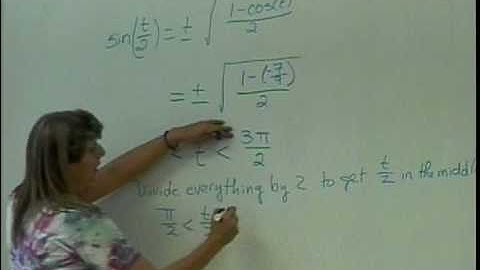 sin(t/2) = ± √((1-cos(t))/2)
= ± √((1-(-7/9))/2)
< t < 3π/2
Divide everything by 2 to get t/2 in the middl
π/2 < t/